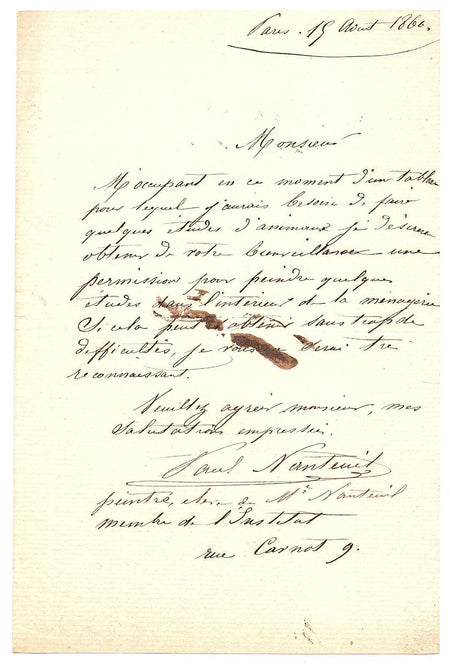 Paris. 15 Août 1860.
Monsieur
M'occupant en ce moment d'un tableau
pour lequel j'aurais besoin de faire
quelques études d'animaux je désirerais
obtenir de votre bienveillance une
permission pour peindre quelques
études dans l'intérieur de la ménagerie
Si cela peut s'obtenir sans trop de
difficultés, je vous en serai très
reconnaissant.
Veuillez agréer monsieur, mes
salutations empressées.
Paul Nanteuil
peintre, élève de Mr. Nanteuil
membre de l'Institut
rue Carnot 9.